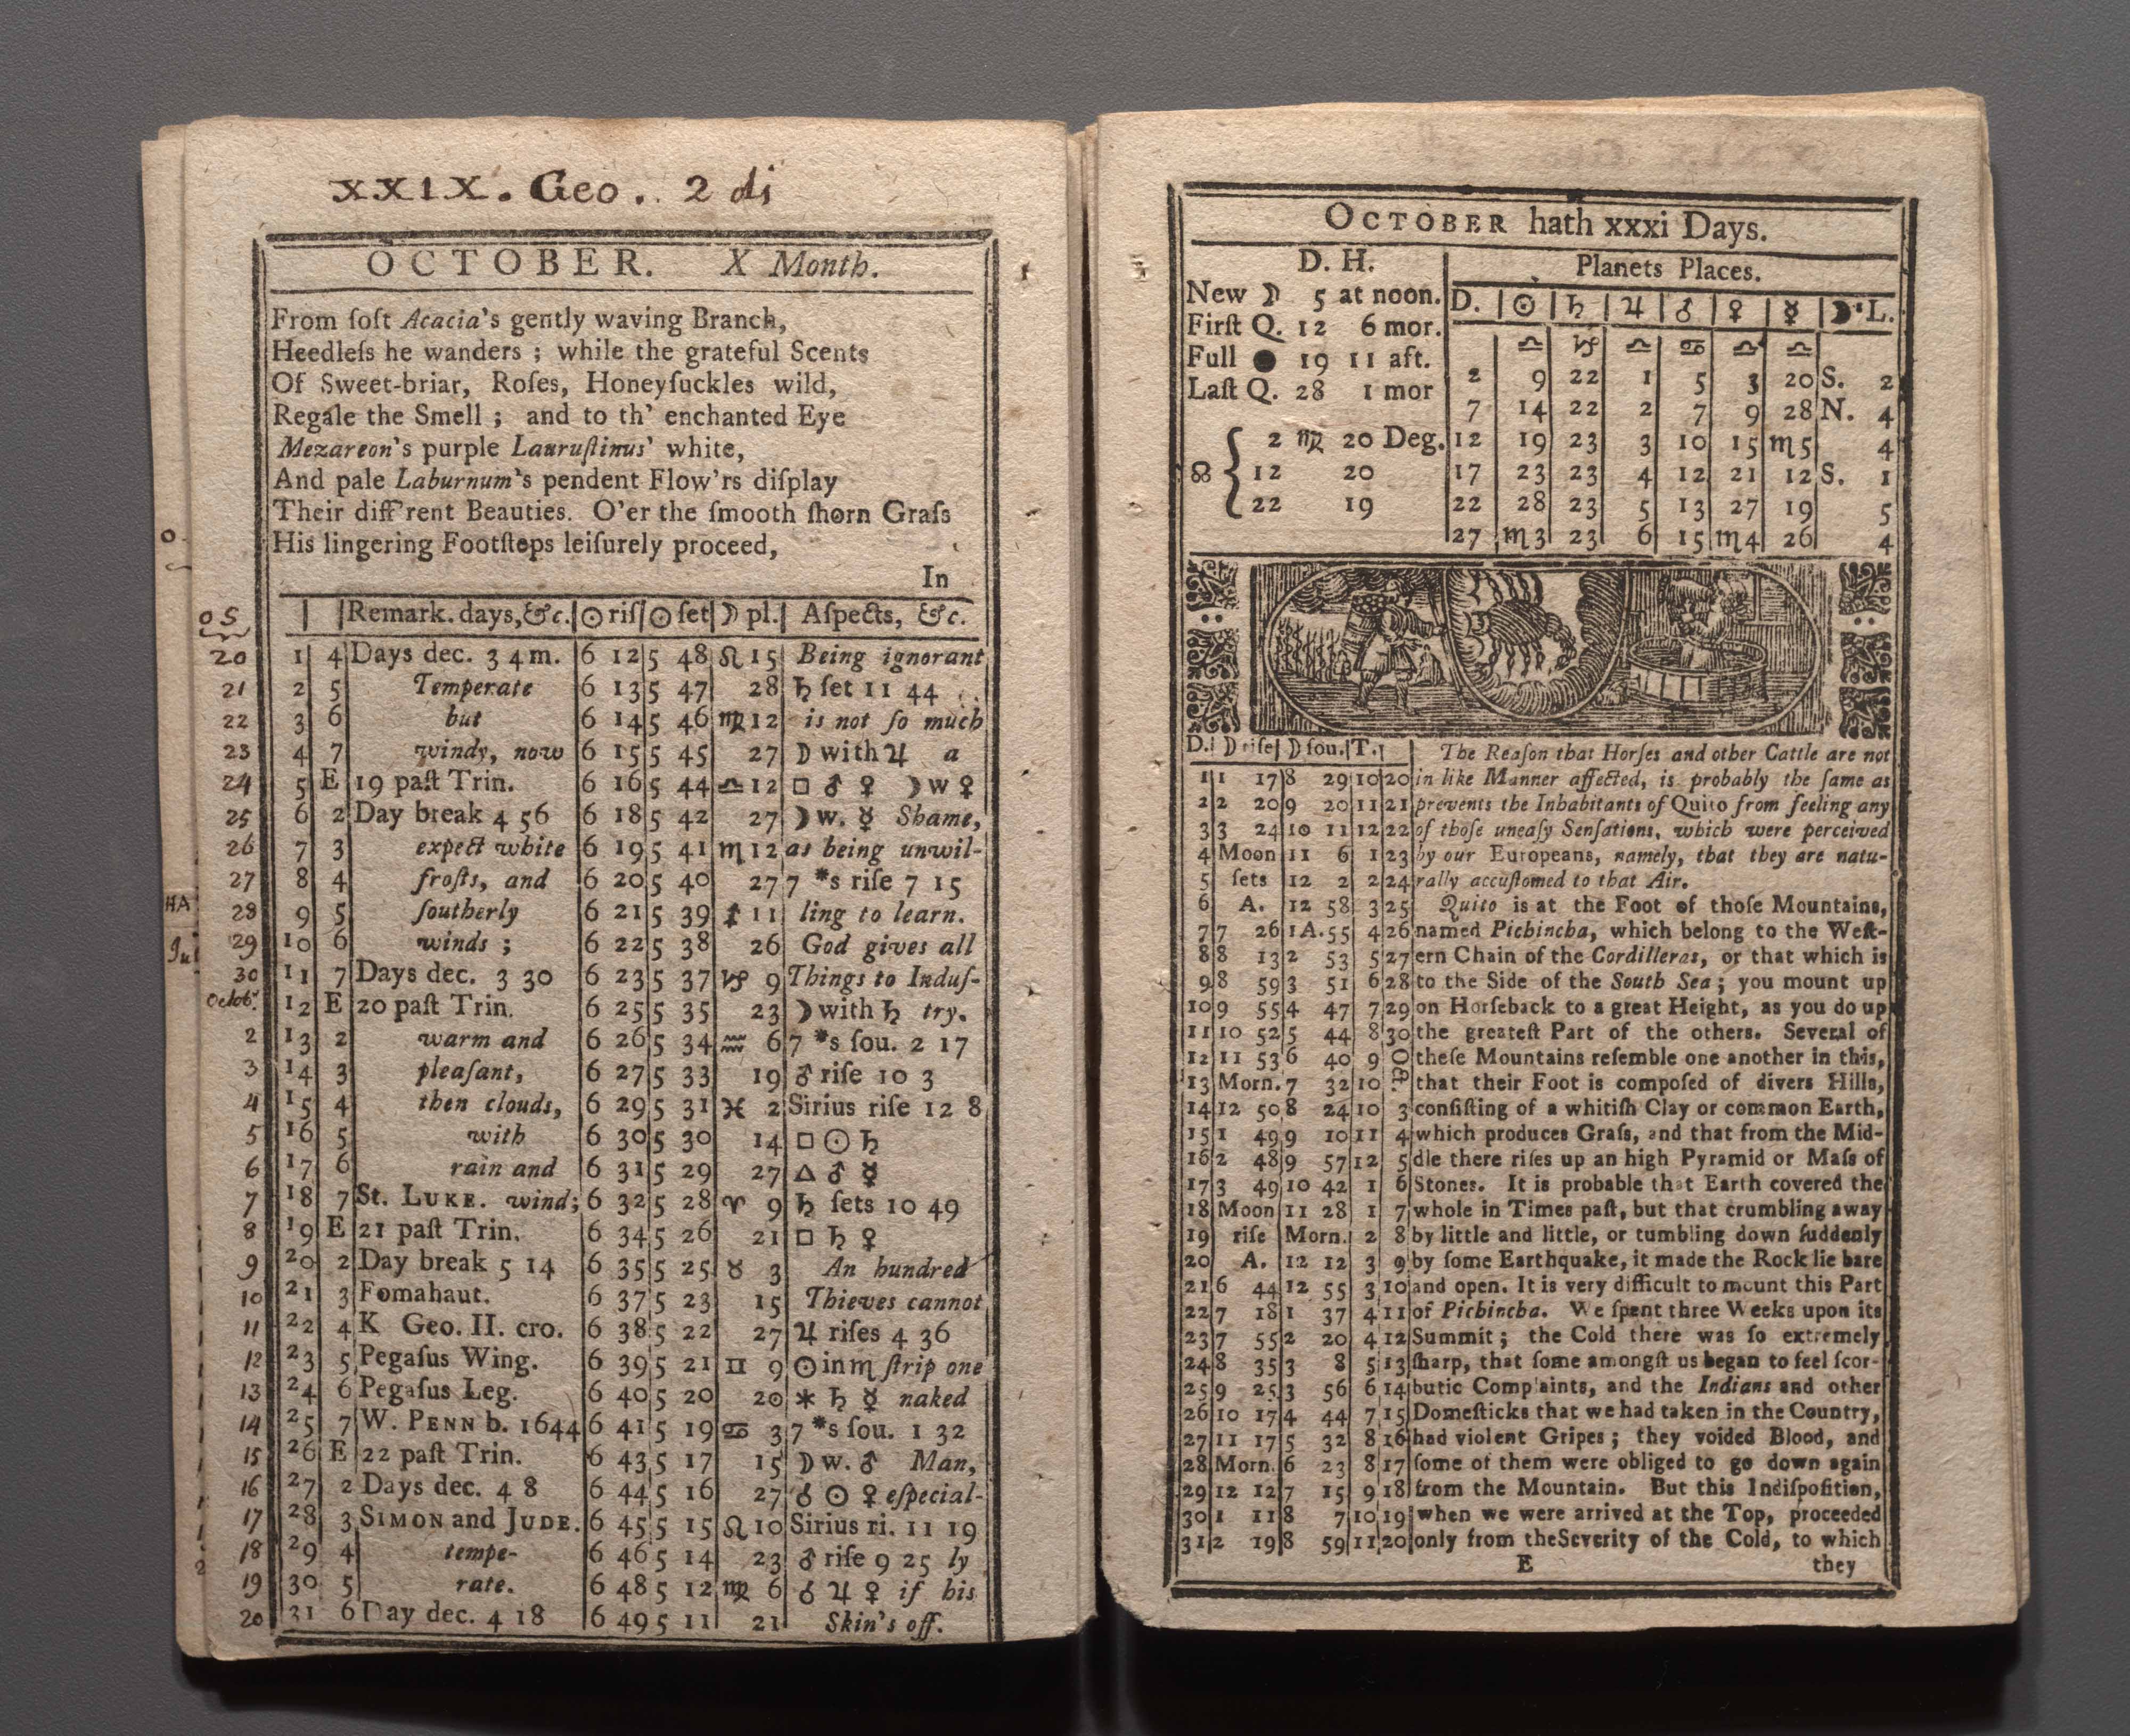 XXIX. Geo. 2 di
OCTOBER. X Month.
From ſoft Acacia's gently waving Branch,
Heedleſs he wanders ; while the grateful Scents
Of Sweet-briar, Roſes, Honeyſuckles wild,
Regale the Smell ; and to th' enchanted Eye
Mezareon's purple Lauruſtinus' white,
And pale Laburnum's pendent Flow'rs diſplay
Their diff'rent Beauties. O'er the ſmooth ſhorn Graſs
His lingering Footſteps leiſurely proceed,
In
OS
Remark. days, &c. ☉ riſ ☉ ſet ☽ pl. Aſpects, &c.
20 1 4 Days dec. 3 4 m. 6 12 5 48 ♌ 15 Being ignorant
21 2 5 Temperate 6 13 5 47 28 ♄ ſet 11 44
22 3 6 but 6 14 5 46 ♍ 12 is not ſo much
23 4 7 windy, now 6 15 5 45 27 ☽ with ♃ a
24 5 E 19 paſt Trin. 6 16 5 44 ♎ 12 □ ♂ ♀ ☽ w ♀
25 6 2 Day break 4 56 6 18 5 42 27 ☽ w. ☿ Shame,
26 7 3 expect white 6 19 5 41 ♏ 12 as being unwil-
27 8 4 froſts, and 6 20 5 40 27 7 *s riſe 7 15
28 9 5 ſoutherly 6 21 5 39 ♐ 11 ling to learn.
29 10 6 winds ; 6 22 5 38 26 God gives all
30 11 7 Days dec. 3 30 6 23 5 37 ♑ 9 Things to Induſ-
Octobr 12 E 20 paſt Trin. 6 25 5 35 23 ☽ with ♄ try.
2 13 2 warm and 6 26 5 34 ♒ 6 7 *s ſou. 2 17
3 14 3 pleaſant, 6 27 5 33 19 ♂ riſe 10 3
4 15 4 then clouds, 6 29 5 31 ♓ 2 Sirius riſe 12 8
5 16 5 with 6 30 5 30 14 □ ☉ ♄
6 17 6 rain and 6 31 5 29 27 △ ♂ ☿
7 18 7 St. LUKE. wind; 6 32 5 28 ♈ 9 ♄ ſets 10 49
8 19 E 21 paſt Trin. 6 34 5 26 21 □ ♄ ♀
9 20 2 Day break 5 14 6 35 5 25 ♉ 3 An hundred
10 21 3 Fomahaut. 6 37 5 23 15 Thieves cannot
11 22 4 K Geo. II. cro. 6 38 5 22 27 ♃ riſes 4 36
12 23 5 Pegaſus Wing. 6 39 5 21 ♊ 9 ☉ in ♏ ſtrip one
13 24 6 Pegaſus Leg. 6 40 5 20 20 ⚹ ♄ ☿ naked
14 25 7 W. PENN b. 1644 6 41 5 19 ♋ 3 7 *s ſou. 1 32
15 26 E 22 paſt Trin. 6 43 5 17 15 ☽ w. ♂ Man,
16 27 2 Days dec. 4 8 6 44 5 16 27 ☌ ☉ ♀ eſpecial-
17 28 3 SIMON and JUDE. 6 45 5 15 ♌ 10 Sirius ri. 11 19
18 29 4 tempe- 6 46 5 14 23 ♂ riſe 9 25 ly
19 30 5 rate. 6 48 5 12 ♍ 6 ☌ ♃ ♀ if his
20 31 6 Day dec. 4 18 6 49 5 11 21 Skin's off.
OCTOBER hath xxxi Days.
D. H.
New ☽ 5 at noon.
Firſt Q. 12 6 mor.
Full ● 19 11 aft.
Laſt Q. 28 1 mor
☊ { 2 ♍ 20 Deg.
12 20
22 19
Planets Places.
D. ☉ ♄ ♃ ♂ ♀ ☿ ☽'L.
♎ ♑ ♎ ♋ ♎ ♎
2 9 22 1 5 3 20 S. 2
7 14 22 2 7 9 28 N. 4
12 19 23 3 10 15 ♏ 5 4
17 23 23 4 12 21 12 S. 1
22 28 23 5 13 27 19 5
27 ♏ 3 23 6 15 ♏ 4 26 4
D. ☽ riſe ☽ ſou. T. The Reaſon that Horſes and other Cattle are not
1 1 17 8 29 10 20 in like Manner affected, is probably the ſame as
2 2 20 9 20 11 21 prevents the Inhabitants of Quito from feeling any
3 3 24 10 11 12 22 of thoſe uneaſy Senſations, which were perceived
4 Moon 11 6 1 23 by our Europeans, namely, that they are natu-
5 ſets 12 2 2 24 rally accuſtomed to that Air.
6 A. 12 58 3 25 Quito is at the Foot of thoſe Mountains,
7 7 26 1 A. 55 4 26 named Pichincha, which belong to the Weſt-
8 8 13 2 53 5 27 ern Chain of the Cordilleras, or that which is
9 8 59 3 51 6 28 to the Side of the South Sea ; you mount up
10 9 55 4 47 7 29 on Horſeback to a great Height, as you do up
11 10 52 5 44 8 30 the greateſt Part of the others. Several of
12 11 53 6 40 9 Oct. theſe Mountains reſemble one another in this,
13 Morn. 7 32 10 that their Foot is compoſed of divers Hills,
14 12 50 8 24 10 3 conſiſting of a whitiſh Clay or common Earth,
15 1 49 9 10 11 4 which produces Graſs, and that from the Mid-
16 2 48 9 57 12 5 dle there riſes up an high Pyramid or Maſs of
17 3 49 10 42 1 6 Stones. It is probable that Earth covered the
18 Moon 11 28 1 7 whole in Times paſt, but that crumbling away
19 riſe Morn. 2 8 by little and little, or tumbling down ſuddenly
20 A. 12 12 3 9 by ſome Earthquake, it made the Rock lie bare
21 6 44 12 55 3 10 and open. It is very difficult to mount this Part
22 7 18 1 37 4 11 of Pichincha. We ſpent three Weeks upon its
23 7 55 2 20 4 12 Summit ; the Cold there was ſo extremely
24 8 35 3 8 5 13 ſharp, that ſome amongſt us began to feel ſcor-
25 9 25 3 56 6 14 butic Complaints, and the Indians and other
26 10 17 4 44 7 15 Domeſticks that we had taken in the Country,
27 11 17 5 32 8 16 had violent Gripes ; they voided Blood, and
28 Morn. 6 23 8 17 ſome of them were obliged to go down again
29 12 12 7 15 9 18 from the Mountain. But this Indiſpoſition,
30 1 11 8 7 10 19 when we were arrived at the Top, proceeded
31 2 19 8 59 11 20 only from the Severity of the Cold, to which
E they